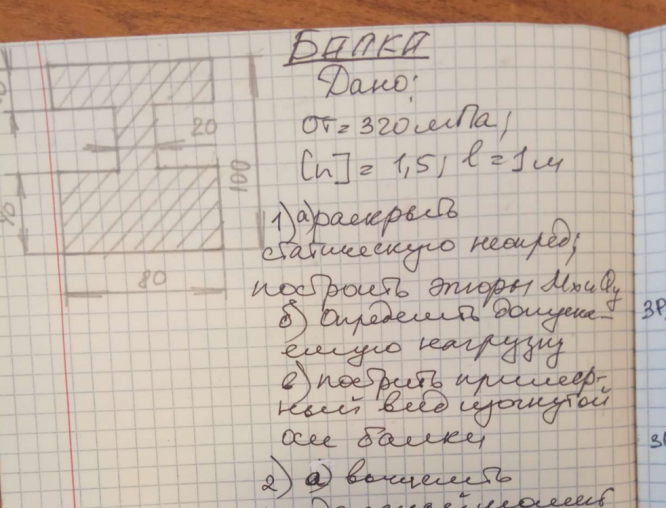 БАЛКА
Дано:
σт = 320 мПа;
[n] = 1,5; l = 1м
20
100
40
80
1) а) раскрыть
статическую неопред;
построить эпюры Mx и Qy
б) Определить допуска-
емую нагрузку
в) построить пример-
ный вид изогнутой
оси балки
2) а) вычислить